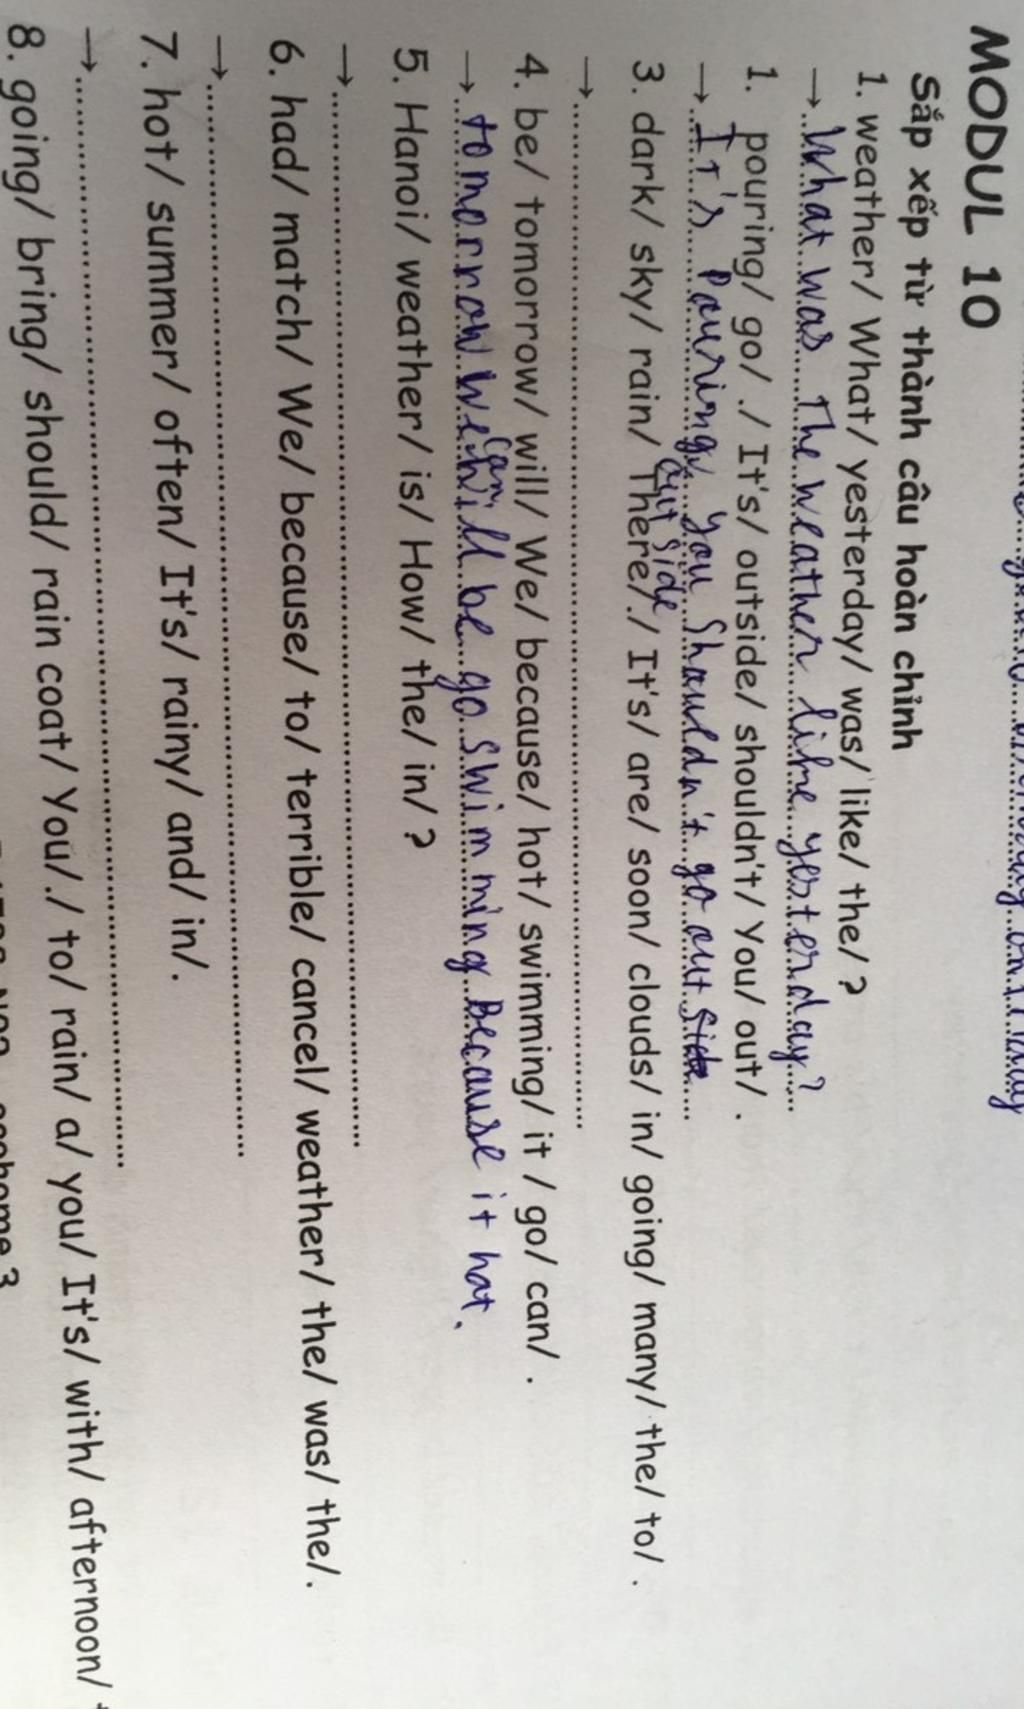 MODUL 10
Sắp xếp từ thành câu hoàn chỉnh
1. weather/ What/ yesterday/ was/ like/ the/ ?
→ What was The weather like yesterday?
1. pouring/ go/ ./ It's/ outside/ shouldn't/ You/ out/ .
→ It's Pouring, You Shouldn't go out
out side
3. dark/ sky/ rain/ There/ ./ It's/ are/ soon/ clouds/ in/ going/ many/ the/ to/ .
→
4. be/ tomorrow/ will/ We/ because/ hot/ swimming/ it / go/ can/ .
can
→ tomorrow we will be go swimming Because it hot.
5. Hanoi/ weather/ is/ How/ the/ in/ ?
→
6. had/ match/ We/ because/ to/ terrible/ cancel/ weather/ the/ was/ the/.
→
7. hot/ summer/ often/ It's/ rainy/ and/ in/.
→
8. going/ bring/ should/ rain coat/ You/ ./ to/ rain/ a/ you/ It's/ with/ afternoon/